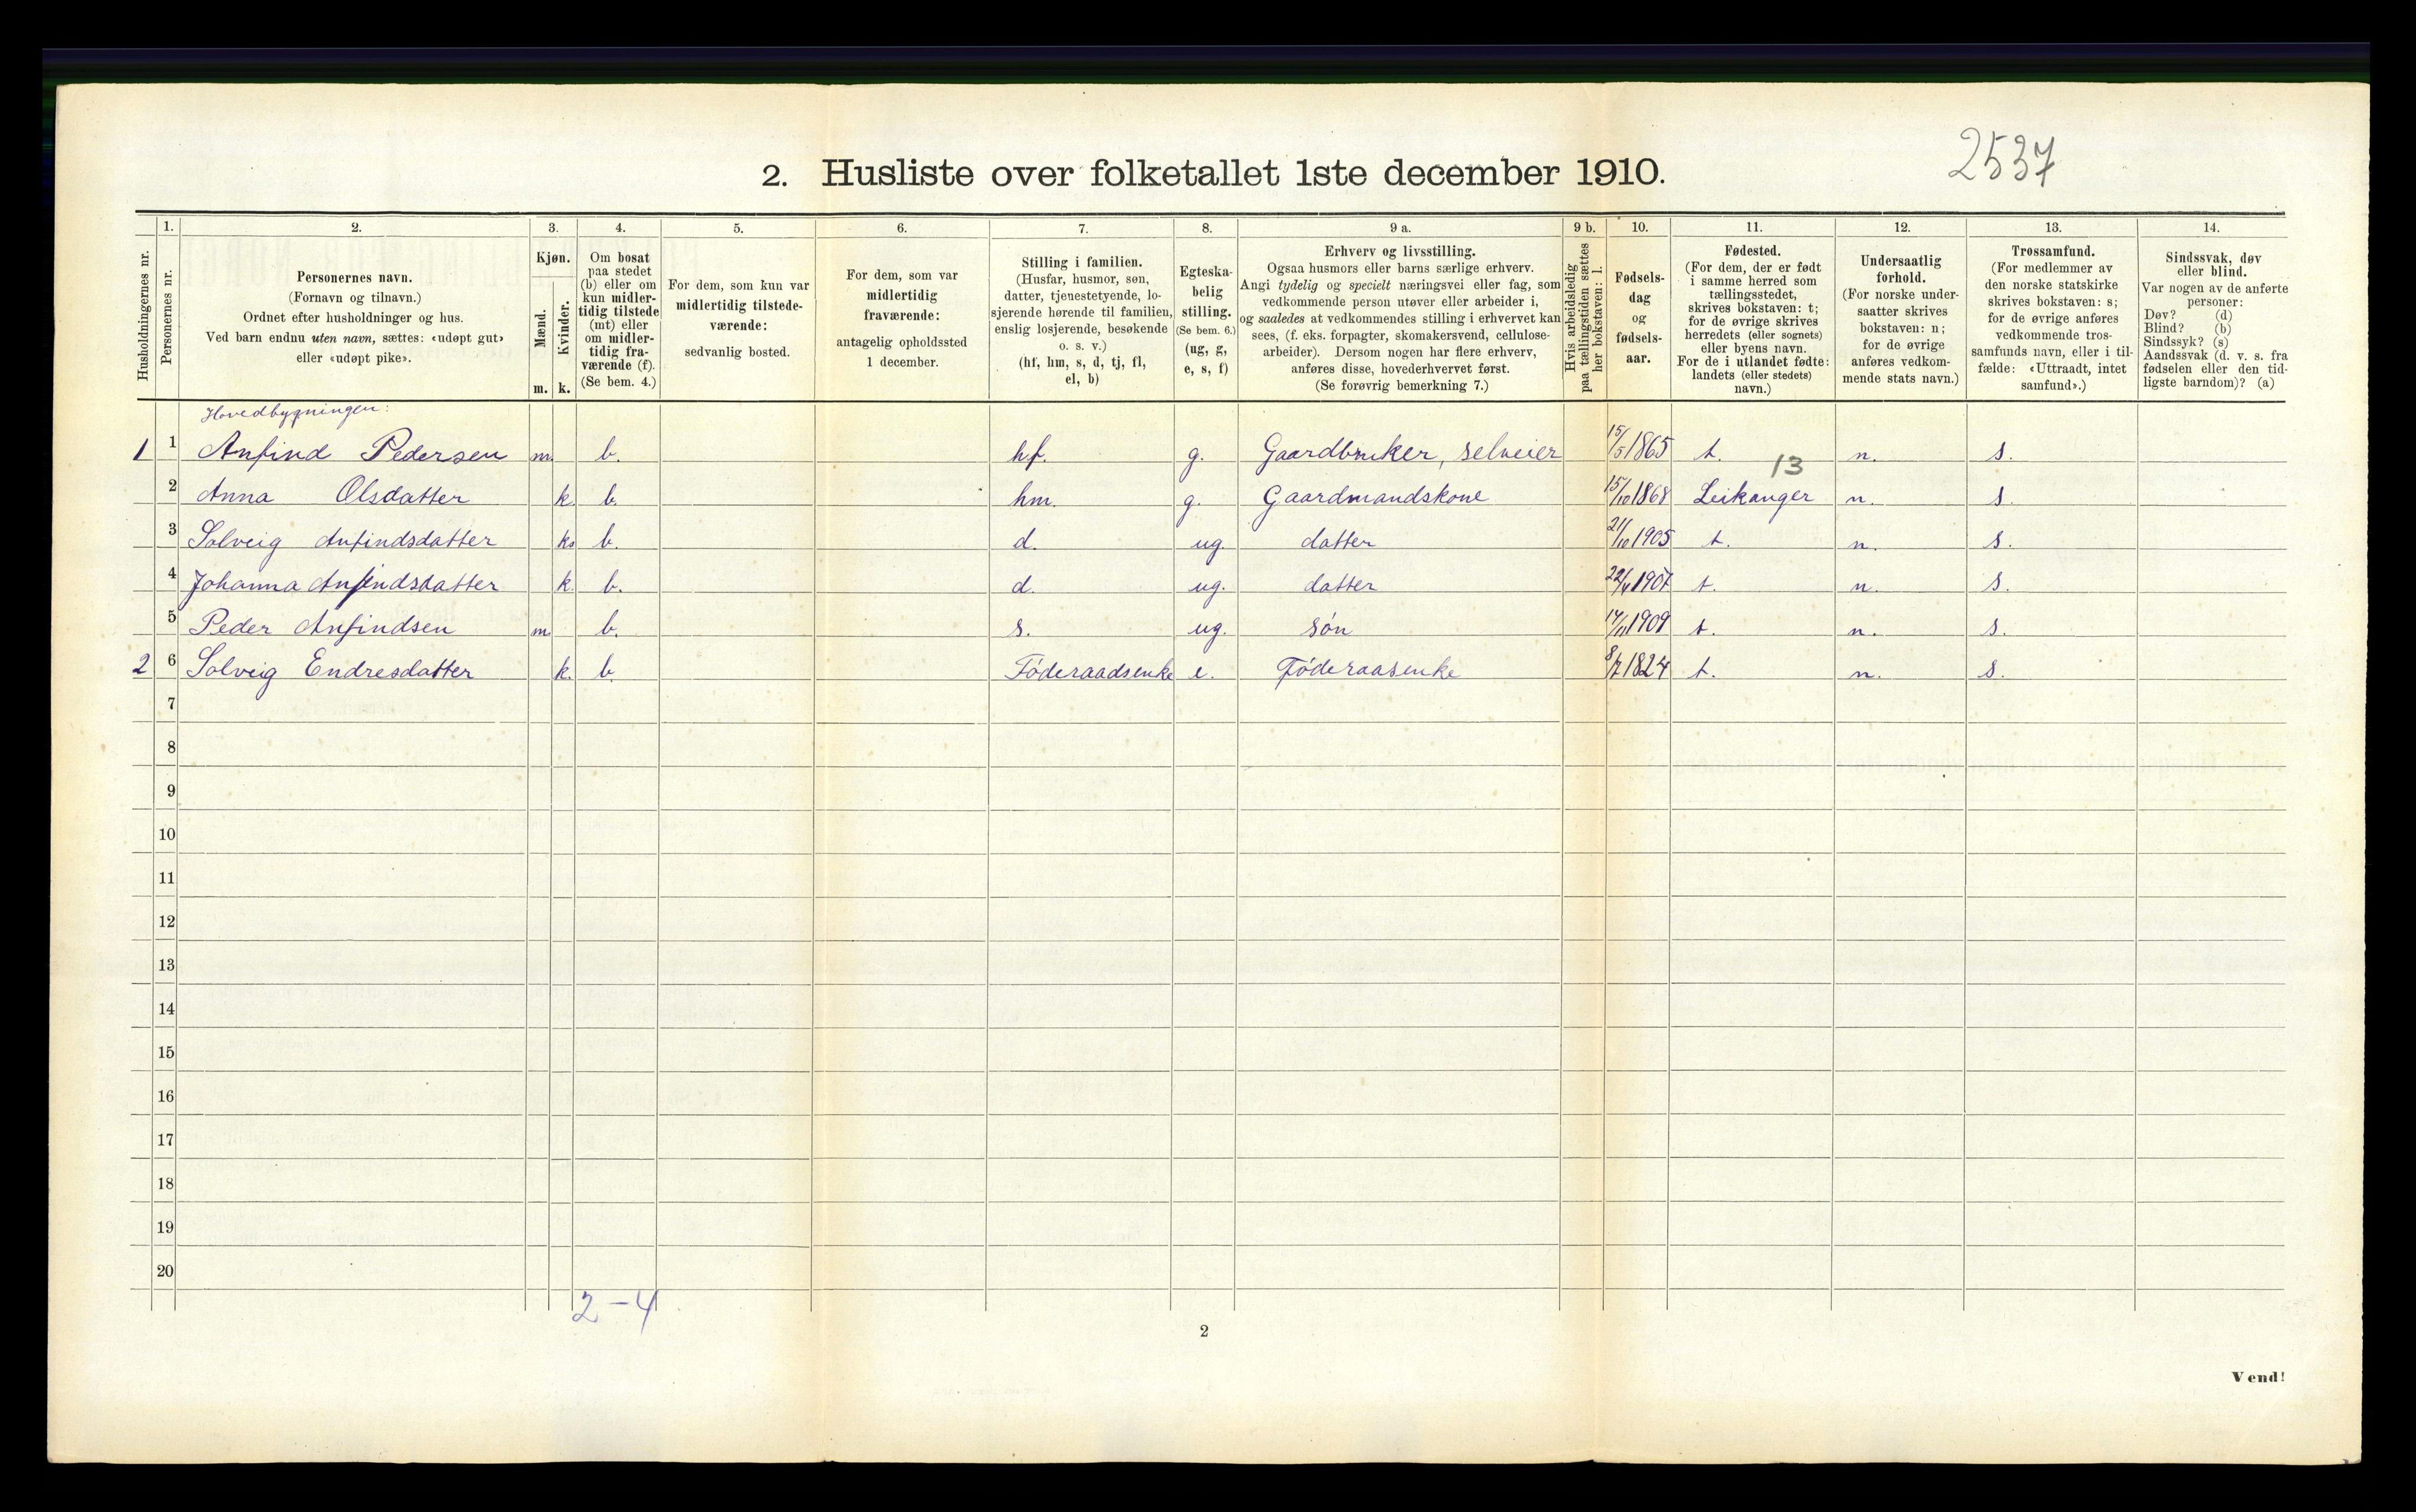 2537
2. Husliste over folketallet 1ste december 1910.
Husholdningernes nr.
1.
Personernes nr.
2.
Personernes navn.
(Fornavn og tilnavn.)
Ordnet efter husholdninger og hus.
Ved barn endnu uten navn, sættes: «udøpt gut»
eller «udøpt pike».
3.
Kjøn.
Mænd.
Kvinder.
m. k.
4.
Om bosat
paa stedet
(b) eller om
kun midler-
tidig tilstede
(mt) eller
om midler-
tidig fra-
værende (f).
(Se bem. 4.)
5.
For dem, som kun var
midlertidig tilstede-
værende:
sedvanlig bosted.
6.
For dem, som var
midlertidig
fraværende:
antagelig opholdssted
1 december.
7.
Stilling i familien.
(Husfar, husmor, søn,
datter, tjenestetyende, lo-
sjerende hørende til familien,
enslig losjerende, besøkende
o. s. v.)
(hf, hm, s, d, tj, fl,
el, b)
8.
Egteska-
belig
stilling.
(Se bem. 6.)
(ug, g,
e, s, f)
9 a.
Erhverv og livsstilling.
Ogsaa husmors eller barns særlige erhverv.
Angi tydelig og specielt næringsvei eller fag, som
vedkommende person utøver eller arbeider i,
og saaledes at vedkommendes stilling i erhvervet kan
sees, (f. eks. forpagter, skomakersvend, cellulose-
arbeider). Dersom nogen har flere erhverv,
anføres disse, hovederhvervet først.
(Se forøvrig bemerkning 7.)
9 b.
Hvis arbeidsledig
paa tællingstiden sættes
her bokstaven: l.
10.
Fødsels-
dag
og
fødsels-
aar.
11.
Fødested.
(For dem, der er født
i samme herred som
tællingsstedet,
skrives bokstaven: t;
for de øvrige skrives
herredets (eller sognets)
eller byens navn.
For de i utlandet fødte:
landets (eller stedets)
navn.)
12.
Undersaatlig
forhold.
(For norske under-
saatter skrives
bokstaven: n;
for de øvrige
anføres vedkom-
mende stats navn.)
13.
Trossamfund.
(For medlemmer av
den norske statskirke
skrives bokstaven: s;
for de øvrige anføres
vedkommende tros-
samfunds navn, eller i til-
fælde: «Uttraadt, intet
samfund».)
14.
Sindssvak, døv
eller blind.
Var nogen av de anførte
personer:
Døv? (d)
Blind? (b)
Sindssyk? (s)
Aandssvak (d. v. s. fra
fødselen eller den tid-
ligste barndom)? (a)
Hovedbygningen:
1 1 Anfind Pedersen m. b. hf. g. Gaardbruker, selveier 15/5 1865 t. n. s.
13
2 Anna Olsdatter k. b. hm. g. Gaardmandskone 15/10 1868 Leikanger n. s.
3 Solveig Anfindsdatter k. b. d. ug. datter 21/10 1905 t. n. s.
4 Johanna Anfindsdatter k. b. d. ug. datter 22/4 1907 t. n. s.
5 Peder Anfindsen m b. s. ug. søn 17/11 1909 t. n. s.
2 6 Solveig Endresdatter k. b. Föderaadsenke e. Föderaasenke 8/7 1824 t. n. s.
7
8
9
10
11
12
13
14
15
16
17
18
19
20
2-4
2
Vend!